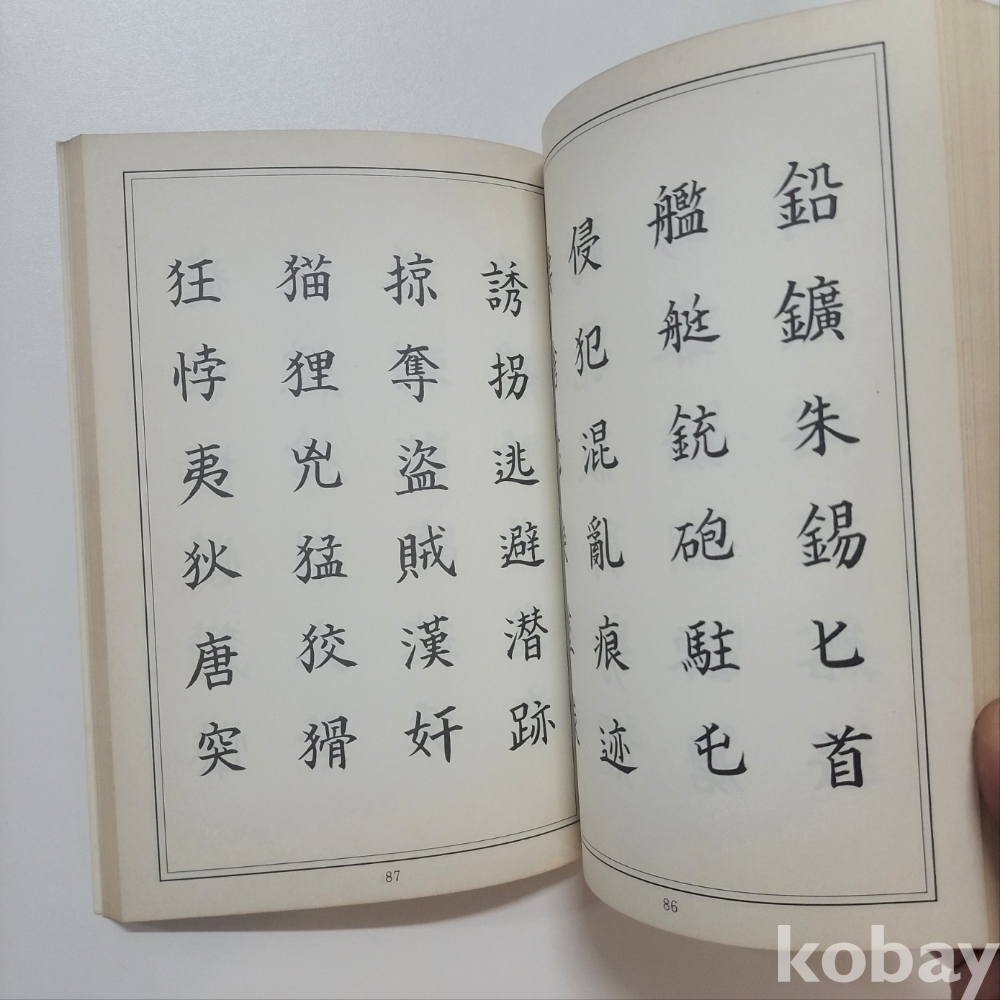 鉛鑛朱錫匕首
艦艇銃砲駐屯
侵犯混亂痕迹
86
誘拐逃避潜跡
掠奪盗賊漢奸
猫狸兇猛狡猾
狂悖夷狄唐突
87
kobay